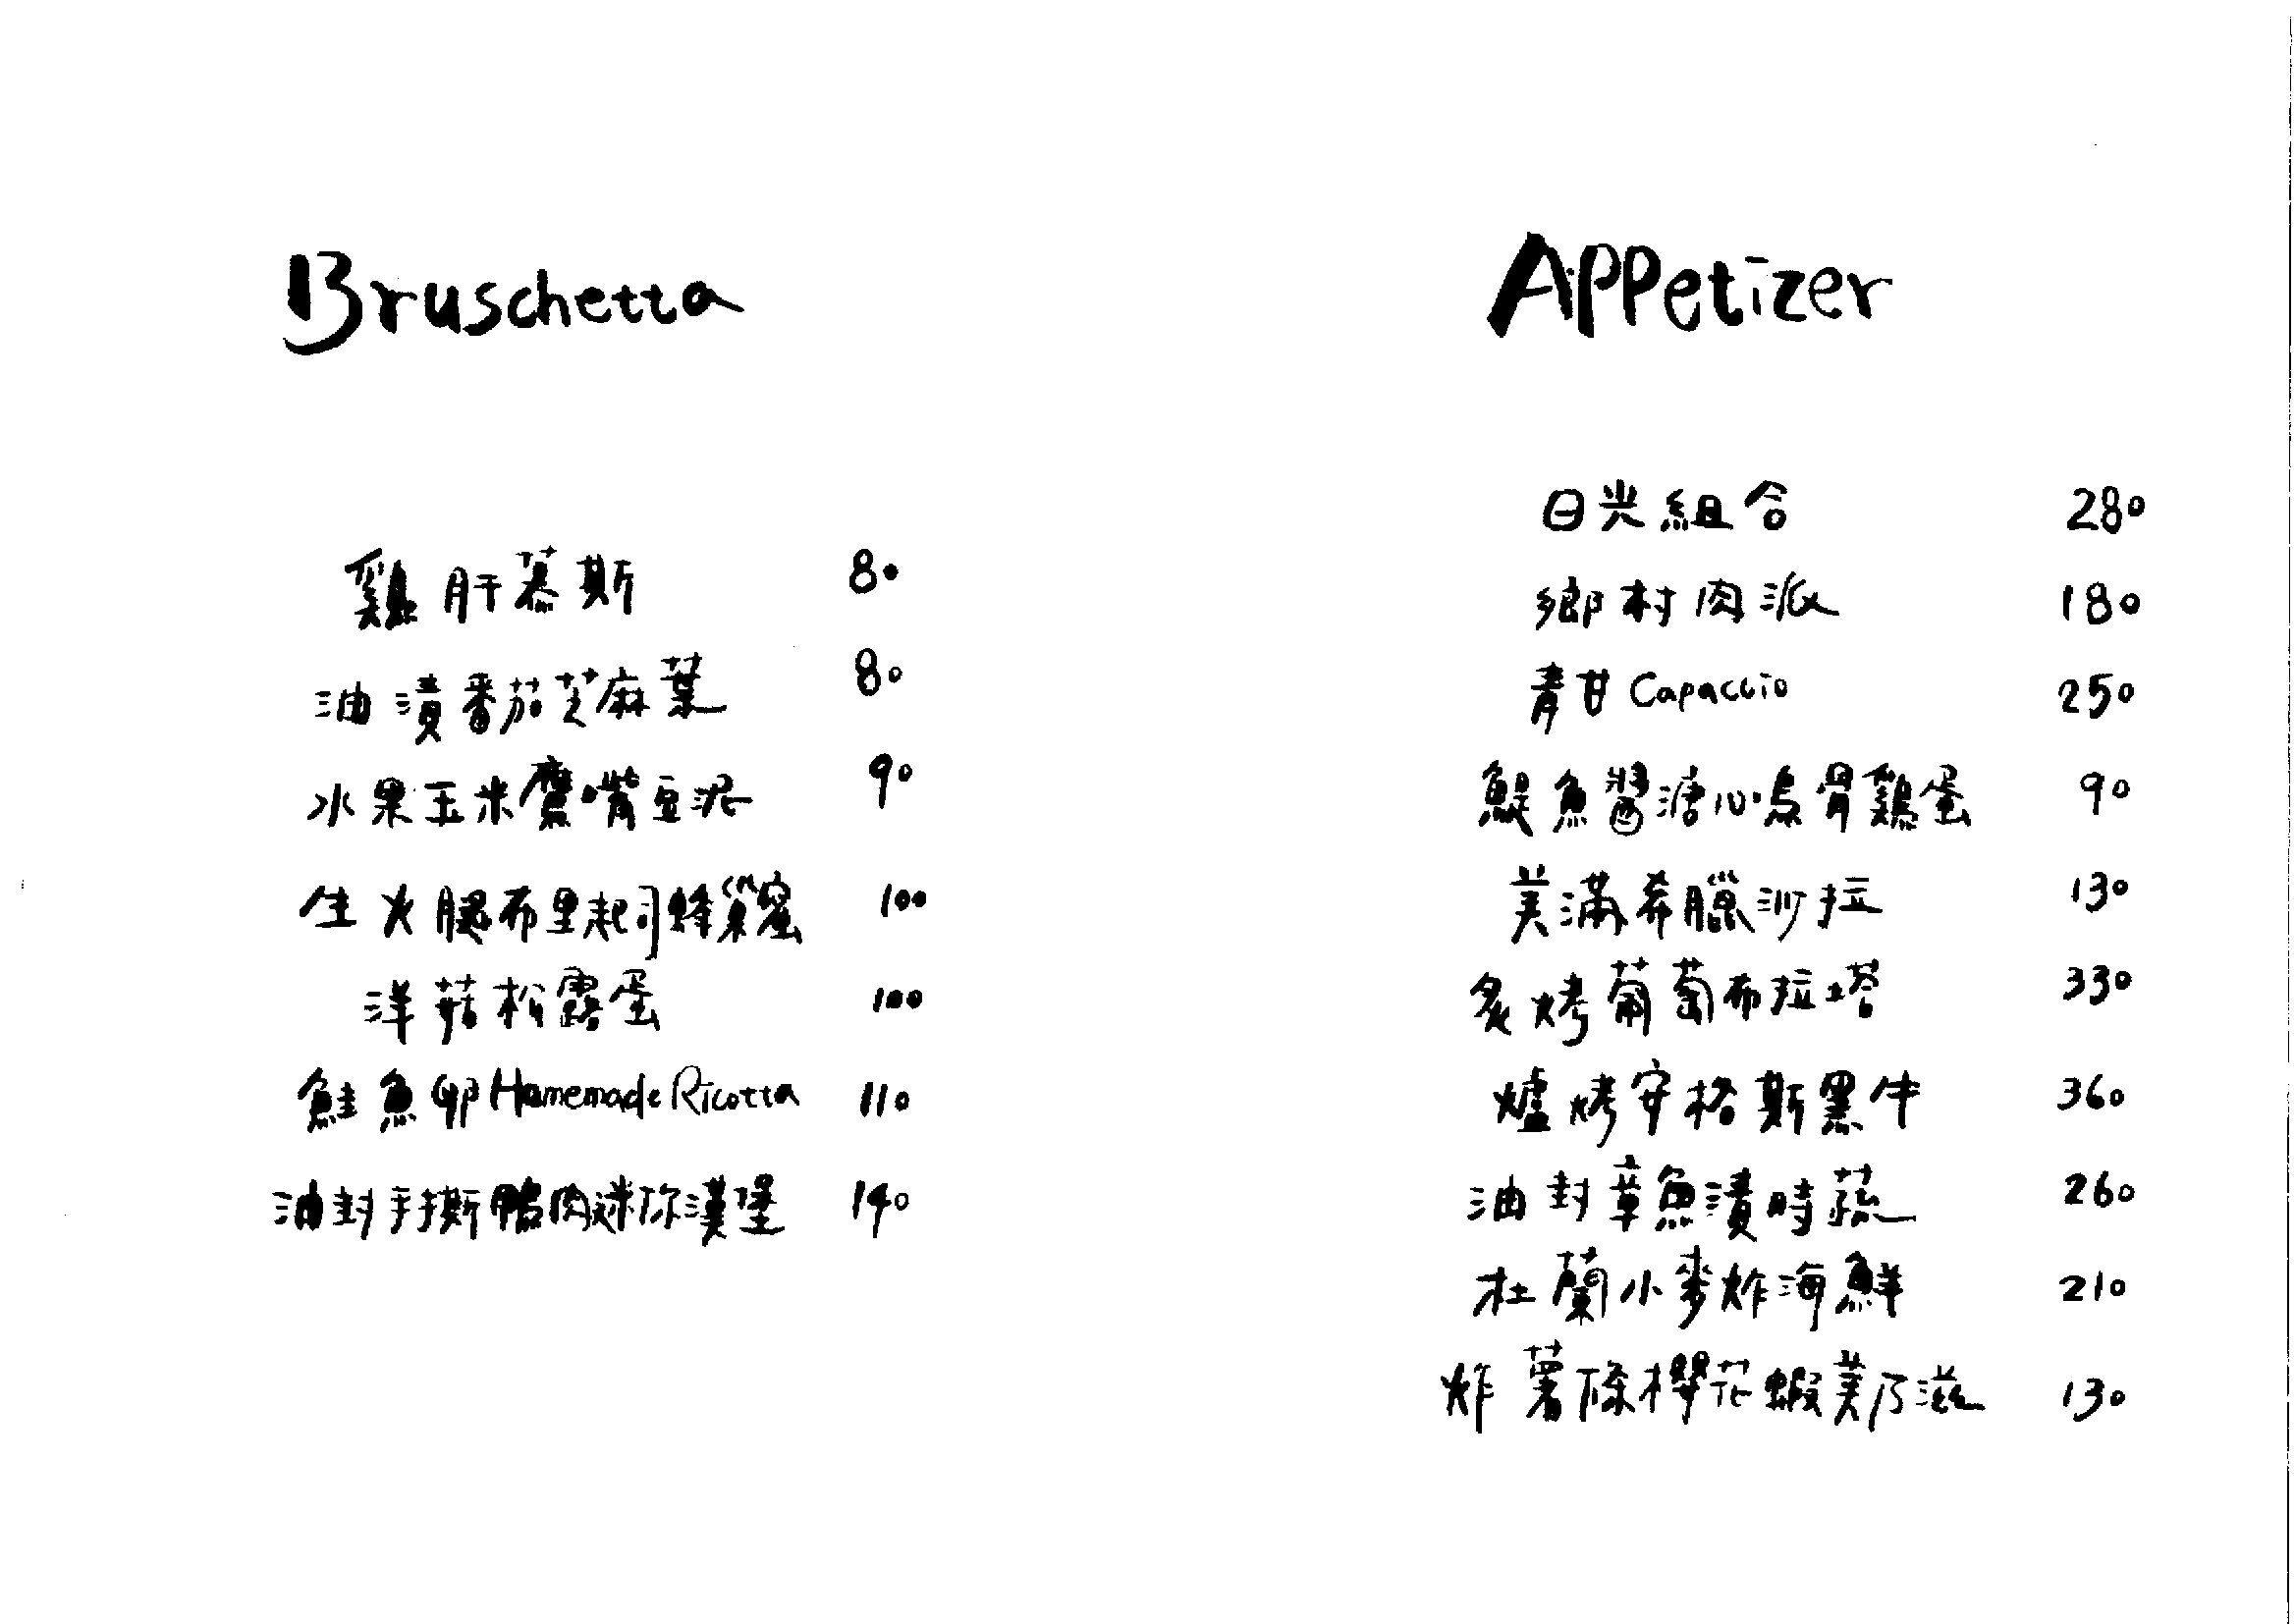 Bruschetta
雞肝慕斯 80
油漬番茄芝麻葉 80
水果玉米鷹嘴豆泥 90
生火腿布里起司蜂巢蜜 100
洋菇松露蛋 100
鮭魚卵 Homemade Ricotta 110
油封手撕鴨肉迷你漢堡 140
APPetizer
日光組合 280
鄉村肉派 180
青甘 Capaccio 250
鯷魚醬溏心烏骨雞蛋 90
美滿希臘沙拉 130
炙烤葡萄布拉塔 330
爐烤安格斯黑牛 360
油封章魚漬時蔬 260
杜蘭小麥炸海鮮 210
炸薯條櫻花蝦美乃滋 130